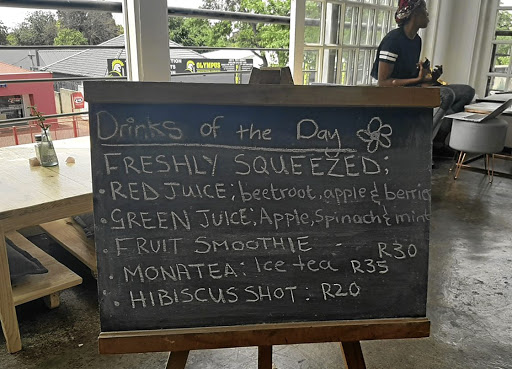 OLYMPUS
Drinks of the Day
FRESHLY SQUEEZED;
• RED JUICE; beetroot, apple & berrie
• GREEN JUICE; Apple, Spinach & mint
• FRUIT SMOOTHIE - R30
• MONATEA: Ice tea R35
• HIBISCUS SHOT: R20